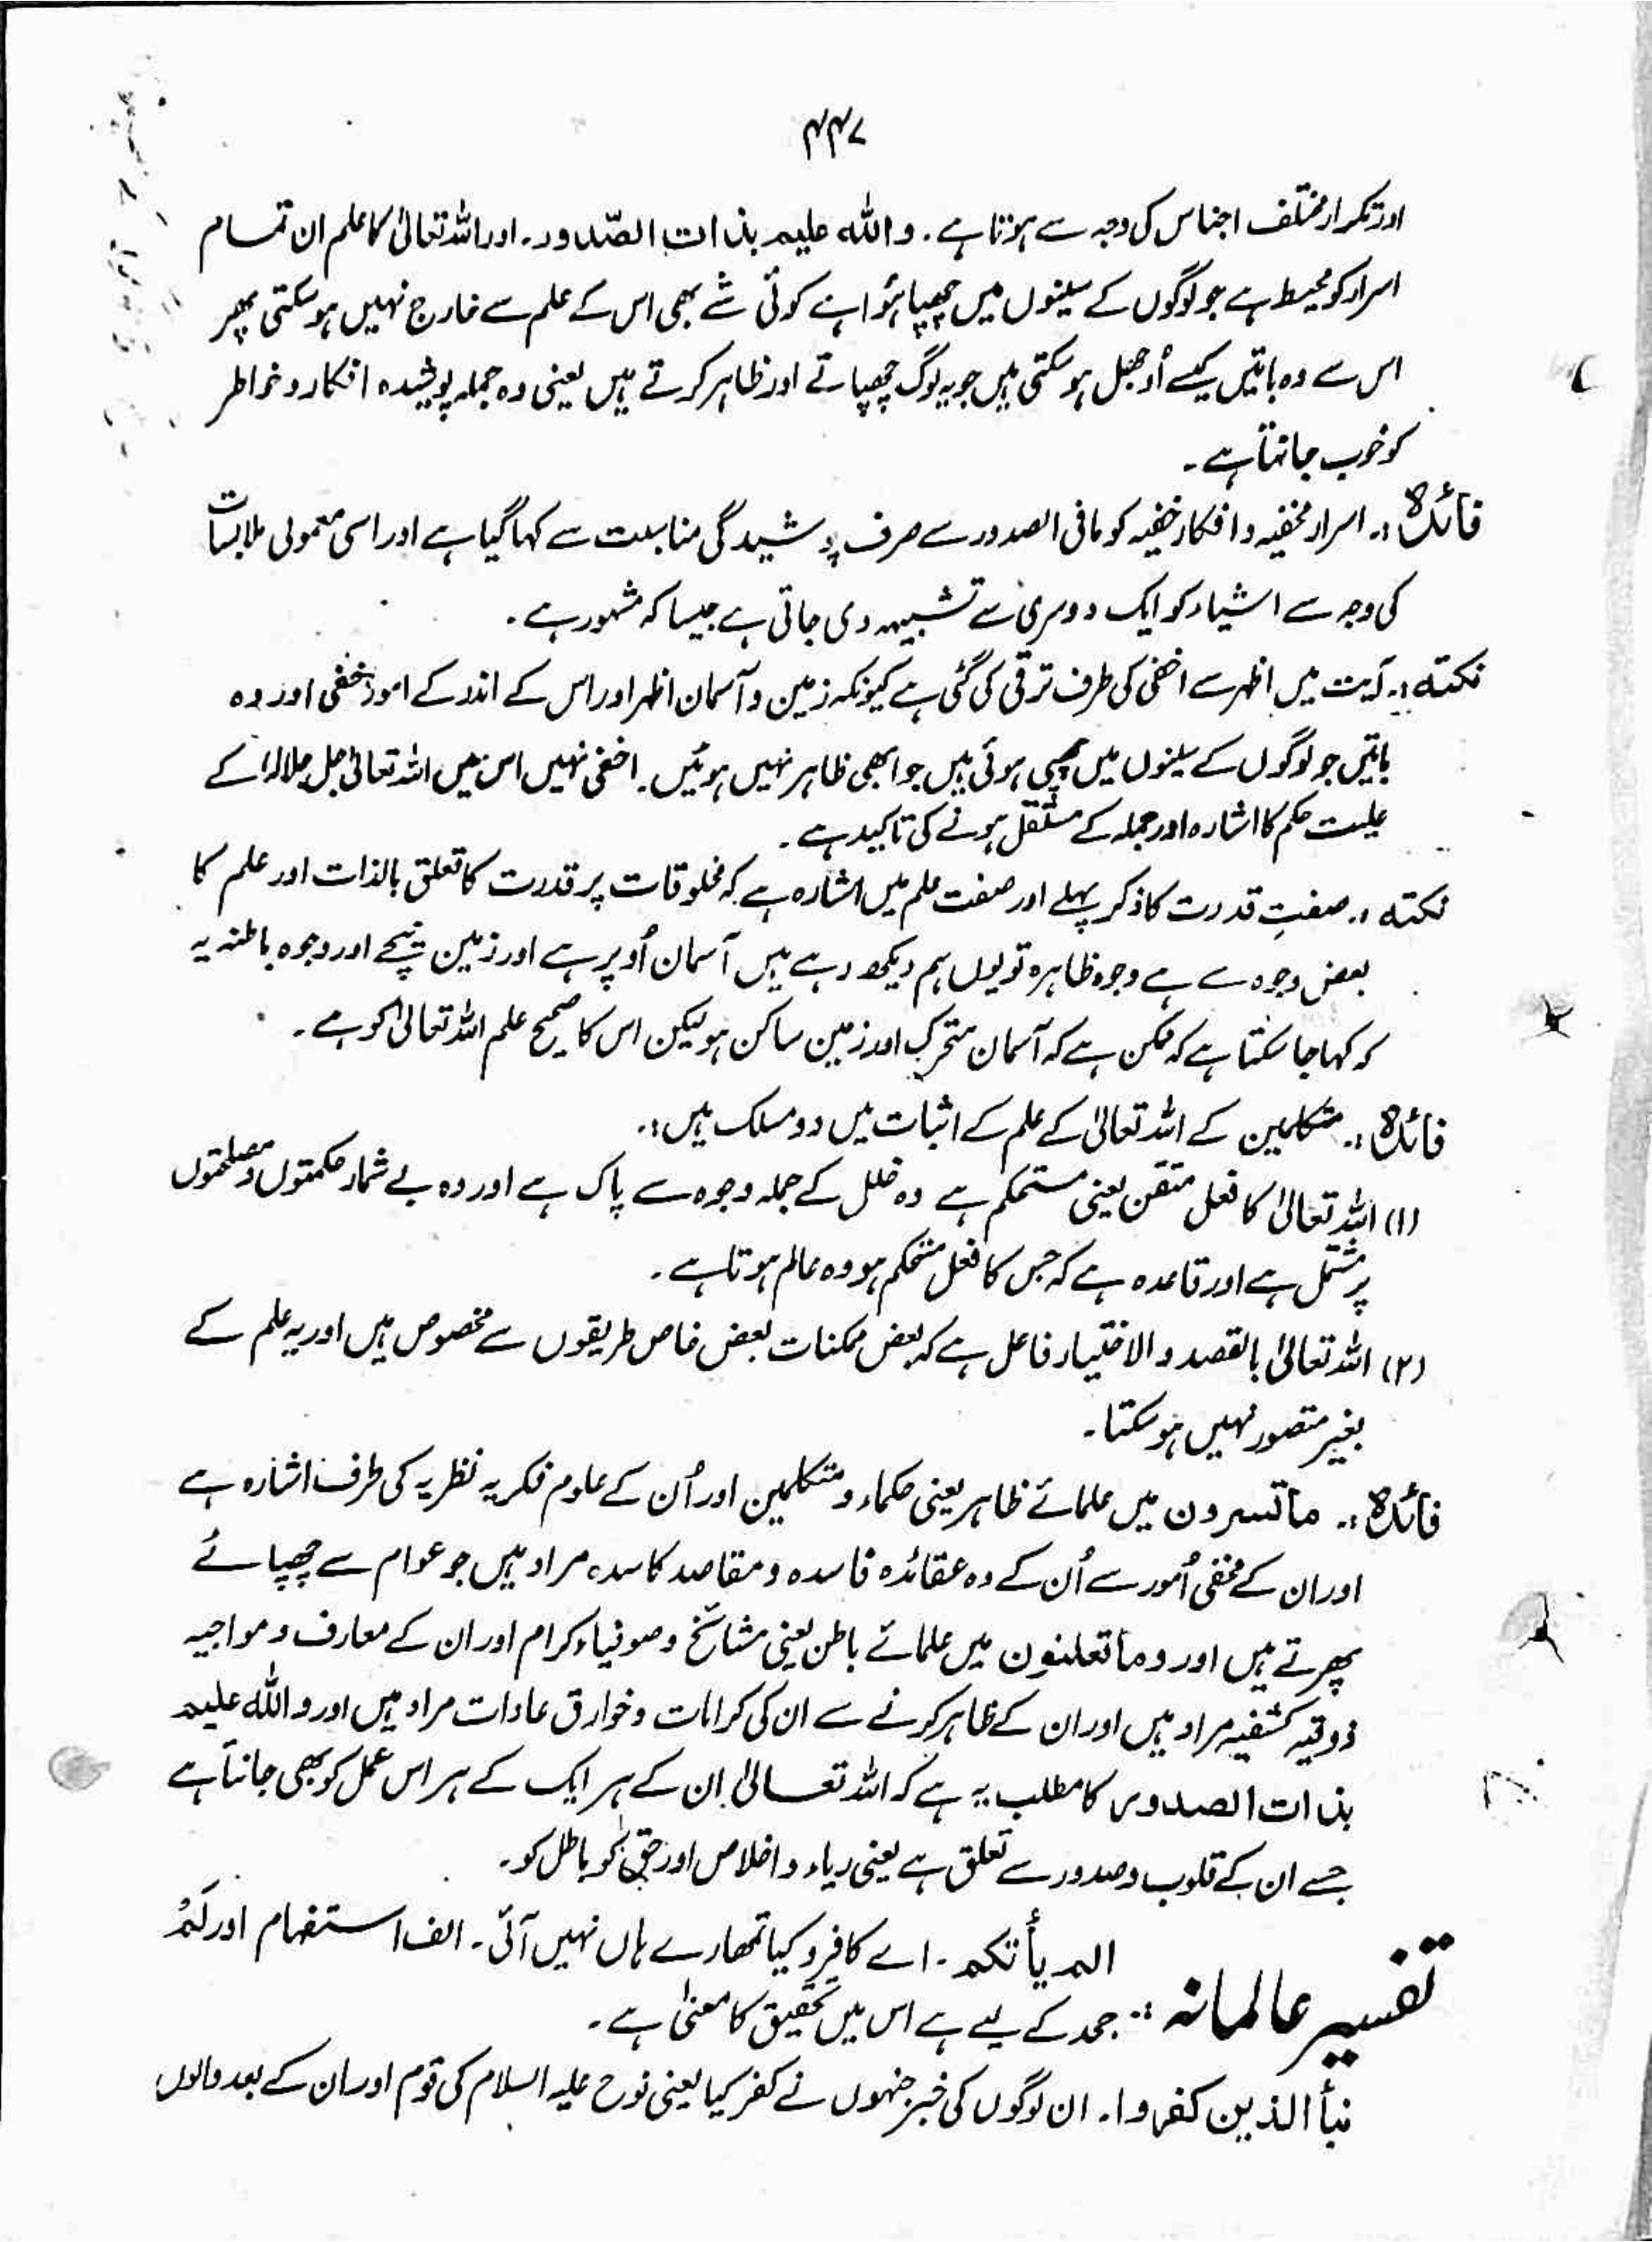 ۴۴۷
اور تکرار مختلف اجناس کی وجہ سے ہوتا ہے۔ واللہ علیم بذات الصّدور۔ اور اللہ تعالیٰ کا علم ان تمام
اسرار کو محیط ہے جو لوگوں کے سینوں میں چھپا ہُوا ہے کوئی شے بھی اس کے علم سے خارج نہیں ہوسکتی پھر
اس سے وہ باتیں کیسے اُوجھل ہوسکتی ہیں جو یہ لوگ چھپاتے اور ظاہر کرتے ہیں یعنی وہ جملہ پوشیدہ افکار و خواطر
کو خوب جانتا ہے۔
فائدہ :۔ اسرار مخفیہ و افکار خفیہ کو مافی الصدور سے صرف پوشیدگی مناسبت سے کہا گیا ہے اور اسی معمولی ملابسات
کی وجہ سے اشیاء کو ایک دوسری سے تشبیہہ دی جاتی ہے جیسا کہ مشہور ہے۔
نکتہ :۔ آیت میں اظہر سے اخفیٰ کی طرف ترقی کی گئی ہے کیونکہ زمین و آسمان اظہر اور اس کے اندر کے امور خفی اور وہ
باتیں جو لوگوں کے سینوں میں چھپی ہوئی ہیں جو ابھی ظاہر نہیں ہوئیں۔ اخفی نہیں اس میں اللہ تعالیٰ جل جلالہٗ کے
علیت حکم کا اشارہ اور جملہ کے مستقل ہونے کی تاکید ہے۔
نکتہ :۔ صفتِ قدرت کا ذکر پہلے اور صفت علم میں اشارہ ہے کہ مخلوقات پر قدرت کا تعلق بالذات اور علم کا
بعض وجوہ سے ہے وجوہ ظاہرہ تو یوں ہم دیکھ رہے ہیں آسمان اُوپر ہے اور زمین نیچے اور وجوہ باطنہ یہ
کہ کہا جا سکتا ہے کہ ممکن ہے کہ آسمان متحرک اور زمین ساکن ہو لیکن اس کا صحیح علم اللہ تعالیٰ کو ہے۔
فائدہ :۔ متکلمین کے اللہ تعالیٰ کے علم کے اثبات میں دو مسلک ہیں :۔
(۱) اللہ تعالیٰ کا فعل متقن یعنی مستحکم ہے وہ خلل کے جملہ وجوہ سے پاک ہے اور وہ بے شمار حکمتوں و مصلحتوں
پر مشتمل ہے اور قاعدہ ہے کہ جس کا فعل متحکم ہو وہ عالم ہوتا ہے۔
(۲) اللہ تعالیٰ بالقصد والاختیار فاعل ہے کہ بعض ممکنات بعض خاص طریقوں سے مخصوص ہیں اور یہ علم کے
بغیر متصور نہیں ہوسکتا۔
فائدہ :۔ ماتسرون میں علمائے ظاہر یعنی حکماء و متکلمین اور اُن کے علوم فکریہ نظریہ کی طرف اشارہ ہے
اور ان کے مخفی اُمور سے اُن کے وہ عقائدہ فاسدہ و مقاصد کاسدہ مراد ہیں جو عوام سے چھپائے
پھرتے ہیں اور وماتعلنون میں علمائے باطن یعنی مشائخ و صوفیاء کرام اور ان کے معارف و مواجیہ
ذوقیہ کشفیہ مراد ہیں اور ان کے ظاہر کرنے سے ان کی کرامات و خوارق عادات مراد ہیں اور واللہ علیم
بذات الصدور کا مطلب یہ ہے کہ اللہ تعالیٰ ان کے ہر ایک کے ہر اس عمل کو بھی جانتا ہے
جسے ان کے قلوب وصدور سے تعلق ہے یعنی ریاء و اخلاص اور حق کو باطل کو۔
الم یأتکم۔ اے کافرو کیا تمھارے ہاں نہیں آئی۔ الف استفہام اور لَمْ
تفسیر عالمانہ :۔ جحد کے لیے ہے اس میں تحقیق کا معنیٰ ہے۔
نبأ الذین کفروا۔ ان لوگوں کی خبر جنہوں نے کفر کیا یعنی نوح علیہ السلام کی قوم اور ان کے بعد والوں